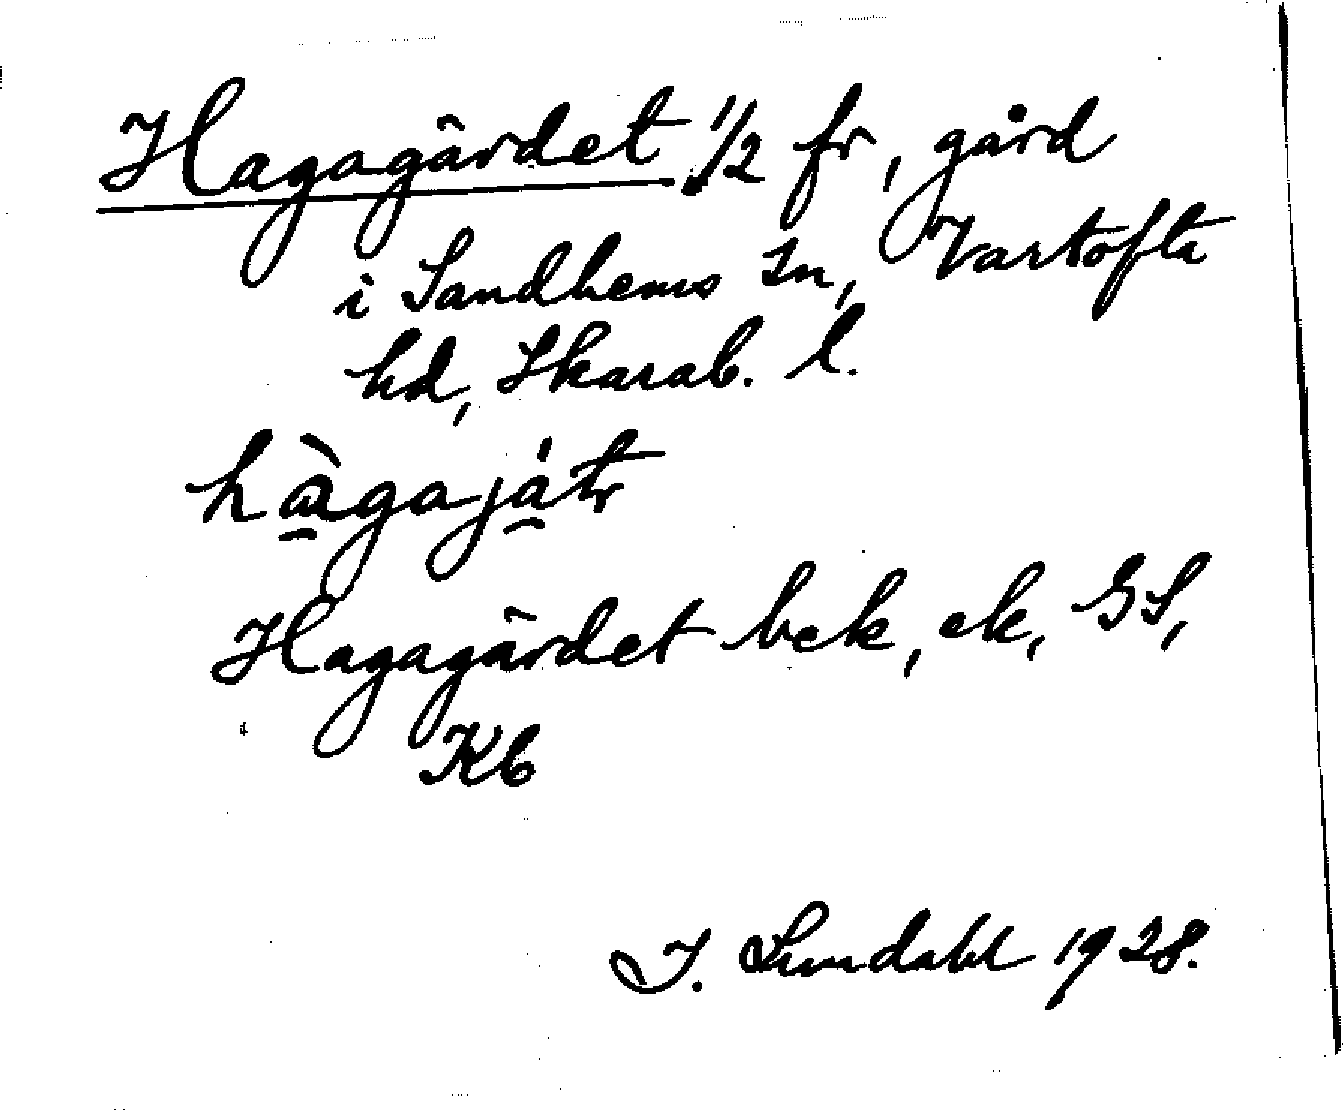 Hagagärdet 1/2 fr, gård
i Sandhems sn, Vartofta
hd, Skarab. l.
hàgajátr
Hagagärdet bek, ek, GS,
Kb
I. Lundahl 1928.